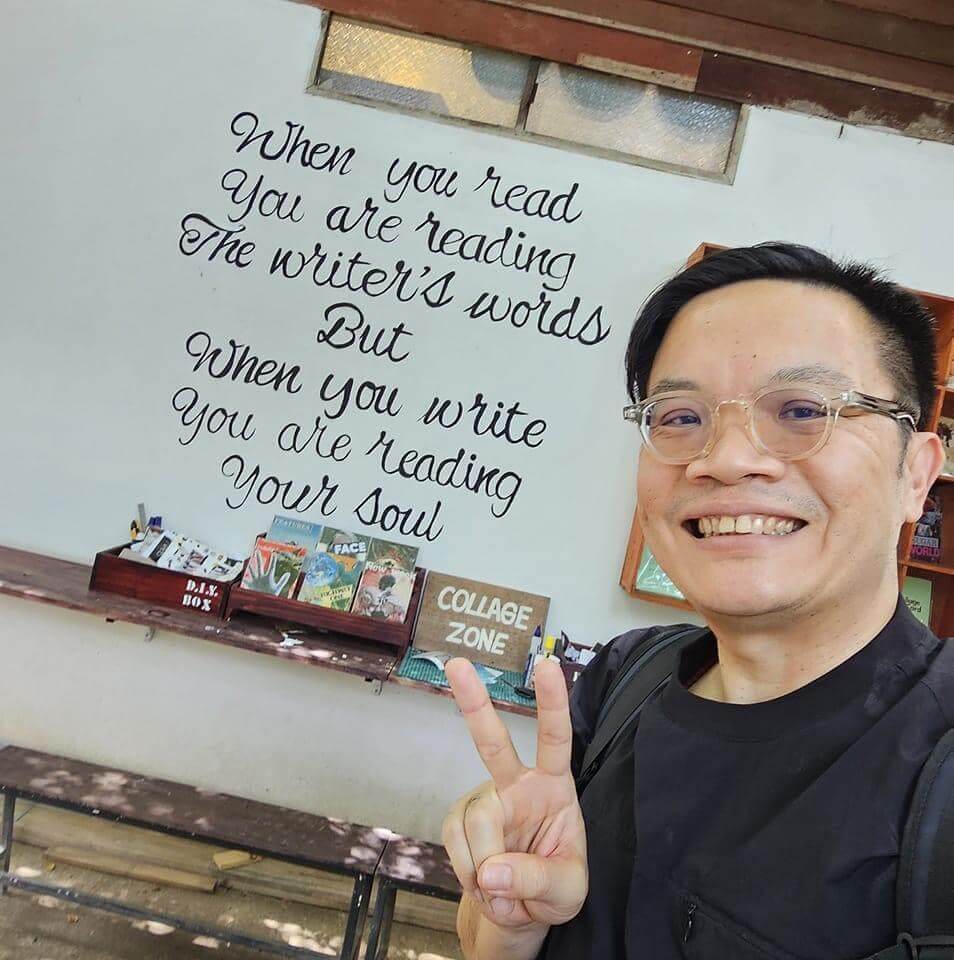 When you read
You are reading
The writer's words
But
When you write
You are reading
Your soul
D.I.Y.
BOX
FEATURES
FACE
COLLAGE
ZONE
WORLD